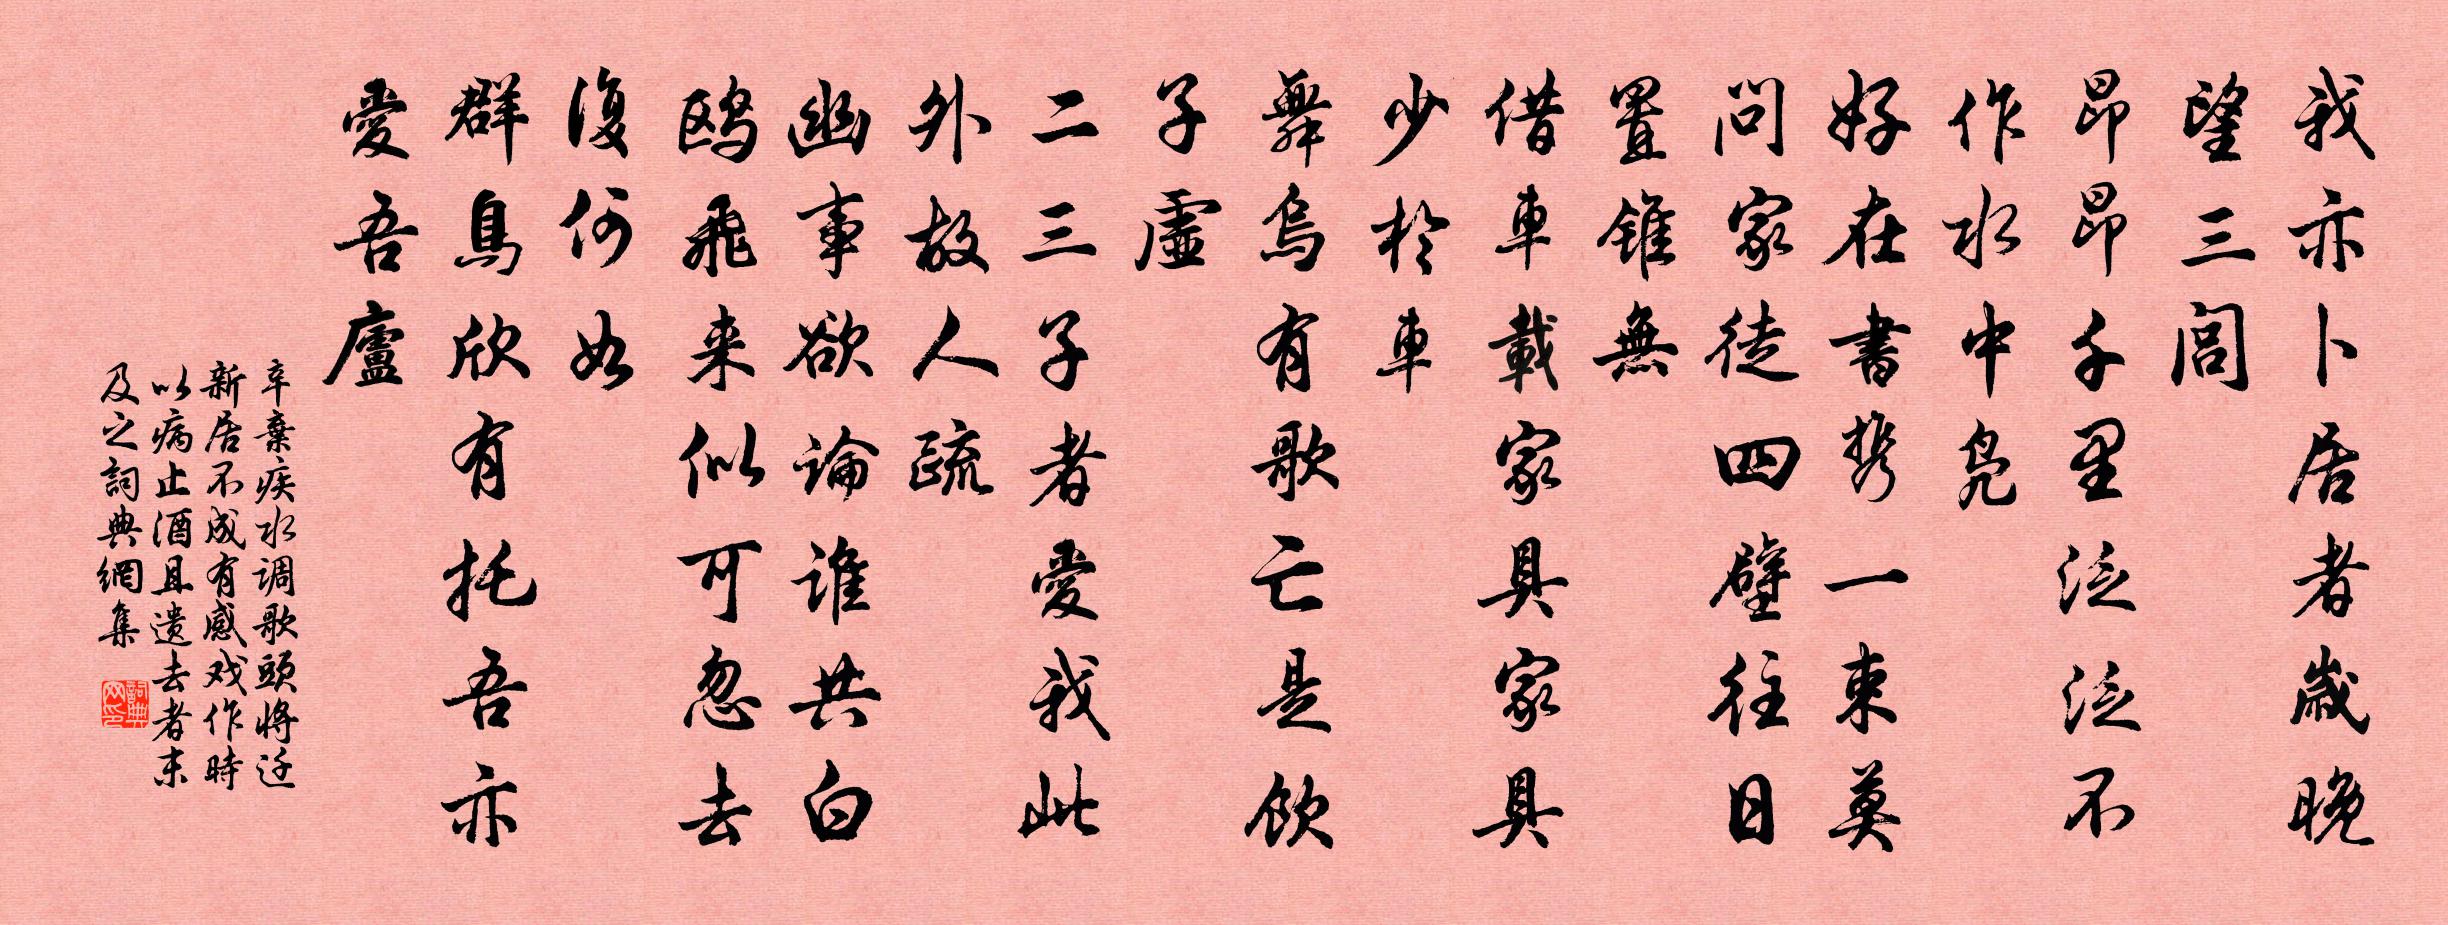 我亦卜居者歲晚
望三閭
昂昂千里泛泛不
作水中鳧
好在書攜一束莫
問家徒四壁往日
置錐無
借車載家具家具
少於車
舞烏有歌亡是飲
子虛
二三子者愛我此
外故人疏
幽事欲論誰共白
鷗飛来似可忽去
復何如
群鳥欣有托吾亦
愛吾廬
辛棄疾水调歌頭將迁
新居不成有感戏作時
以病止酒且遣去者末
及之詞典網集
詞典
网印